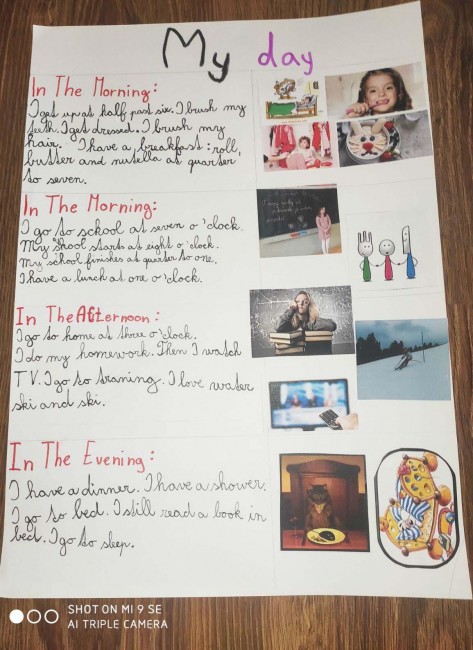 My day
In The Morning:
I get up at half past six. I brush my
teeth. I get dressed. I brush my
hair. I have a breakfast: roll,
butter and nutella at quarter
to seven.
In The Morning:
I go to school at seven o'clock.
My shool starts at eight o'clock.
My school finishes at quarter to one.
I have a lunch at one o'clock.
In The Afternoon:
I go to home at three o'clock.
I do my homework. Then I watch
TV. I go to traning. I love water
ski and ski.
In The Evening:
I have a dinner. I have a shower.
I go to bed. I still read a book in
bed. I go to sleep.
SHOT ON MI 9 SE
AI TRIPLE CAMERA